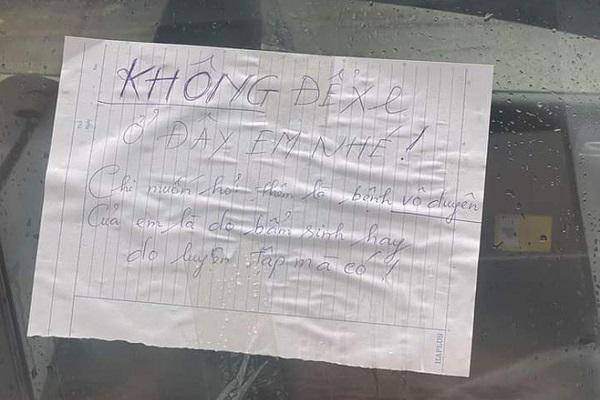 KHÔNG ĐỂ Xe
Ở ĐÂY EM NHÉ!
Chị muốn hỏi thêm là bệnh vô duyên
Của em là do bẩm sinh hay
do luyện tập mà có!
HAPLUS